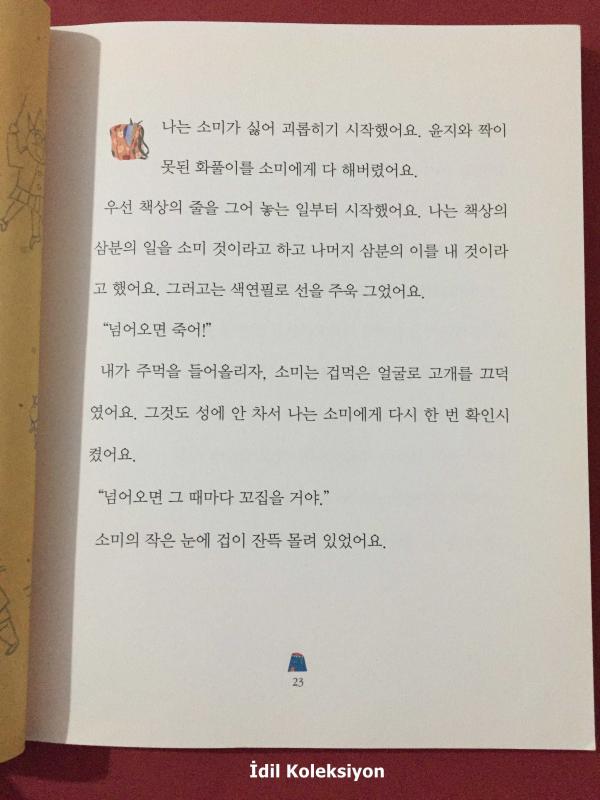 나는 소미가 싫어 괴롭히기 시작했어요. 윤지와 짝이
못된 화풀이를 소미에게 다 해버렸어요.
우선 책상의 줄을 그어 놓는 일부터 시작했어요. 나는 책상의
삼분의 일을 소미 것이라고 하고 나머지 삼분의 이를 내 것이라
고 했어요. 그러고는 색연필로 선을 주욱 그었어요.
“넘어오면 죽어!”
내가 주먹을 들어올리자, 소미는 겁먹은 얼굴로 고개를 끄덕
였어요. 그것도 성에 안 차서 나는 소미에게 다시 한 번 확인시
켰어요.
“넘어오면 그 때마다 꼬집을 거야.”
소미의 작은 눈에 겁이 잔뜩 몰려 있었어요.
23
İdil Koleksiyon